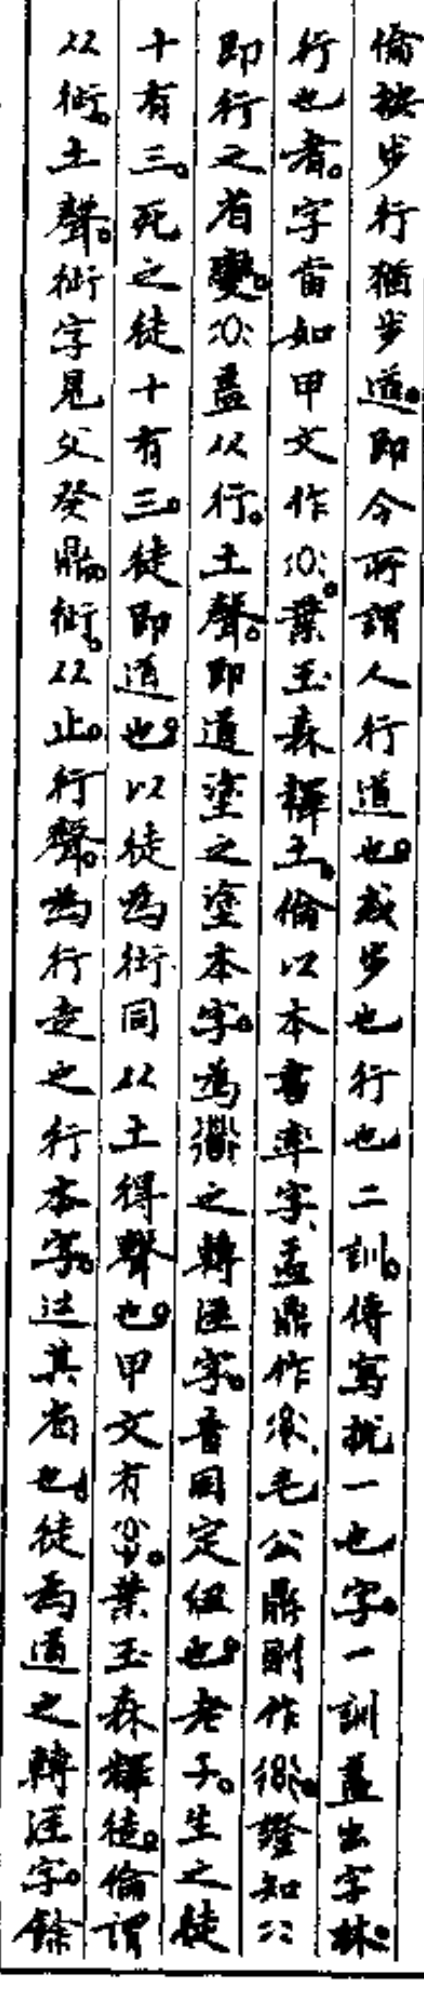 倫按步行猶步道。即今所謂人行道也。或步也行也二訓。傳寫挩一也字。一訓蓋出字林。
行也者。字當如甲文作。葉玉森釋土。倫以本書率字、盂鼎作、毛公鼎則作。證知
即行之省變。蓋从行。土聲。即道塗之塗本字。為之轉注字。音同定紐也。老子。生之徒
十有三。死之徒十有三。徒即道也。以徒為𧗟同从土得聲也。甲文有。葉玉森釋徒。倫謂
从𧗟。土聲。字見父癸鼎。从止。行聲。為行走之行本字。其省也。徒為道之轉注字。餘